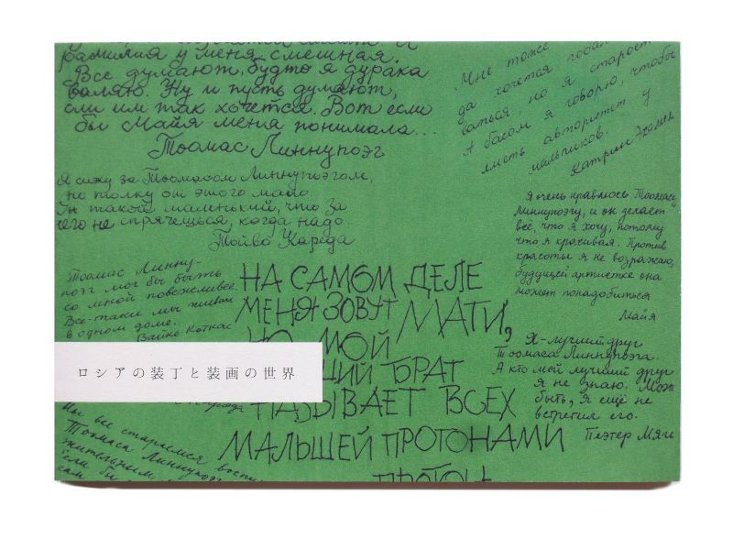 фамилия у меня смешная.
Все думают, будто я дурака
валяю. Ну и пусть думают,
если им так хочется. Вот если
бы Майя меня понимала...
Тоомас Линнупоэг
Я сижу за Тоомасом Линнупоэгом,
но толку от этого мало.
Он такой маленький, что за
него не спрячешься, когда надо.
Тойво Кареда
Тоомас Линну-
поэг мог бы быть
со мной повежливее.
Все-таки мы живём
в одном доме.
Вайке Коткас
Мне тоже
да хочется
но я старост
А басом я говорю, чтобы
иметь авторитет у
мальчиков.
Катрин
Я очень нравлюсь Тоомасу
Линнупоэгу, и он делает
все, что я хочу, потому
что я красивая. Против
красоты я не возражаю,
будущей артистке она
может понадобиться
Майя
Я-лучший друг
Тоомаса Линнупоэга.
А кто мой лучший друг
я не знаю. Может
быть, я ещё не
встретил его.
Пеэтер Мяги
НА САМОМ ДЕЛЕ
МЕНЯ ЗОВУТ МАТИ,
НО МОЙ
ШИЙ БРАТ
НАЗЫВАЕТ ВСЕХ
МАЛЫШЕЙ ПРОТОНАМИ
ПРОТОН
ロシアの装丁と装画の世界
Мы все стараемся воспи
Тоомаса Линнупоэга